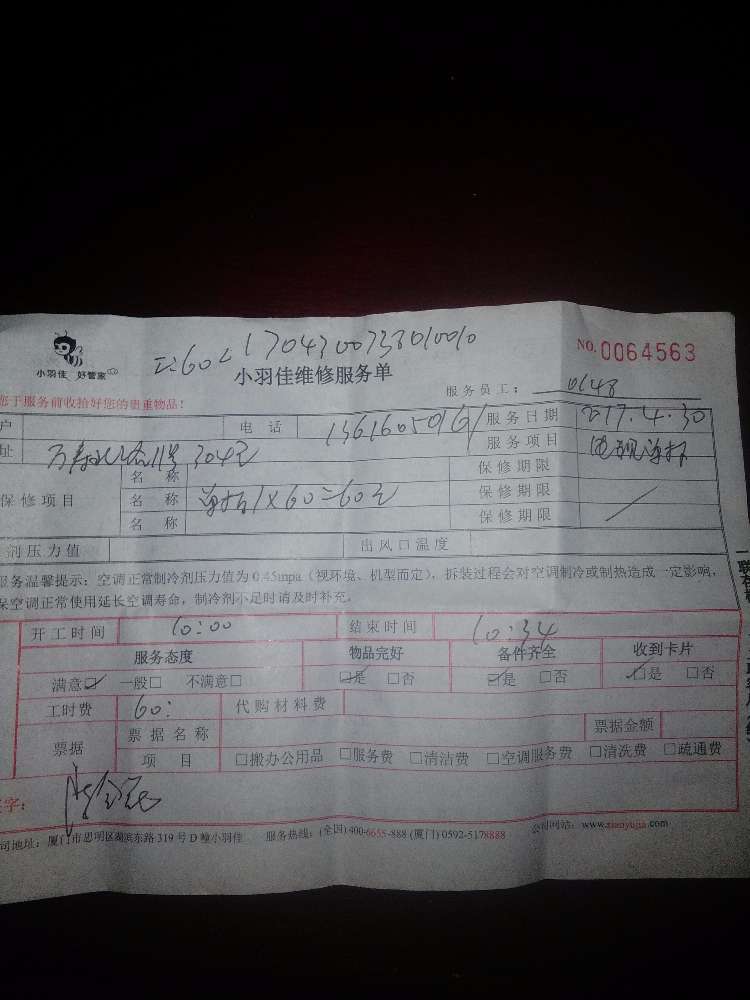 NO. 0064563
小羽佳 好管家
小羽佳维修服务单
服务员工： 0148
您于服务前收拾好您的贵重物品！
户 电 话 服务日期 2017.4.30
址 304 服务项目
保修项目 名 称 保修期限
名 称 1×60=60元 保修期限
名 称 保修期限
剂压力值 出风口温度
服务温馨提示：空调正常制冷剂压力值为 0.45mpa（视环境、机型而定），拆装过程会对空调制冷或制热造成一定影响，
保空调正常使用延长空调寿命，制冷剂不足时请及时补充。
开工时间 10:00 结束时间 10:34
服务态度 物品完好 备件齐全 收到卡片
满意☑ 一般□ 不满意□ ☑是 □否 ☑是 □否 ☑是 □否
工时费 60: 代购材料费
票据 票据名称 票据金额
项 目 □搬办公用品 □服务费 □清洁费 □空调服务费 □清洗费 □疏通费
字：
司地址：厦门市思明区湖滨东路 319 号 D 幢小羽佳 服务热线：(全国) 400-6655-888 (厦门) 0592-5178888 公司网站：www.xiaoyujia.com